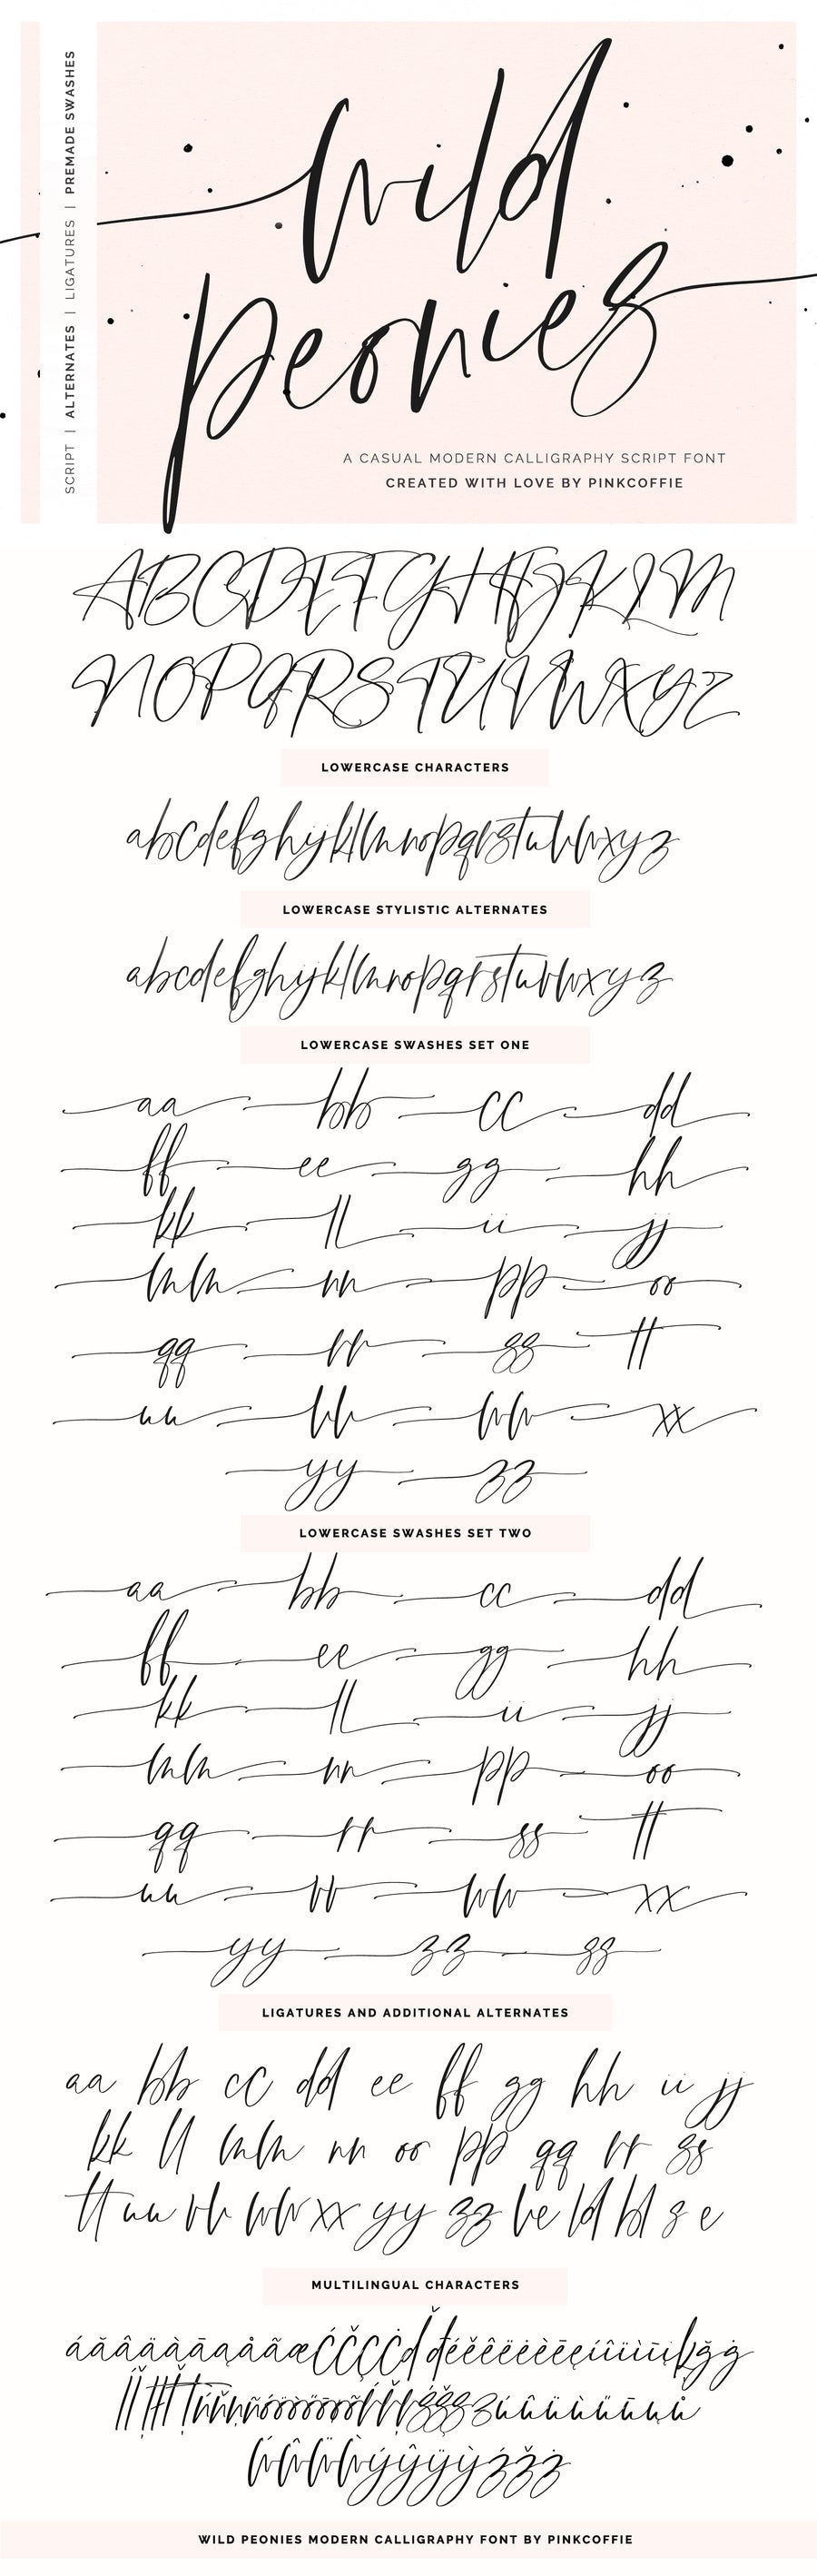 SCRIPT | ALTERNATES | LIGATURES | PREMADE SWASHES
wild
peonies
A CASUAL MODERN CALLIGRAPHY SCRIPT FONT
CREATED WITH LOVE BY PINKCOFFIE
ABCDEFGHIJKLM
NOPQRSTUVWXYZ
LOWERCASE CHARACTERS
abcdefghijklmnopqrstuvwxyz
LOWERCASE STYLISTIC ALTERNATES
abcdefghijklmnopqrstuvwxyz
LOWERCASE SWASHES SET ONE
aa bb cc dd
ff ee gg hh
kk ll ii jj
mm nn pp oo
qq rr ss tt
uu vv ww xx
yy zz
LOWERCASE SWASHES SET TWO
aa bb cc dd
ff ee gg hh
kk ll ii jj
mm nn pp oo
qq rr ss tt
uu vv ww xx
yy zz ss
LIGATURES AND ADDITIONAL ALTERNATES
aa bb cc dd ee ff gg hh ii jj
kk ll mm nn oo pp qq rr ss
tt uu vv ww xx yy zz ve ld bd s e
MULTILINGUAL CHARACTERS
WILD PEONIES MODERN CALLIGRAPHY FONT BY PINKCOFFIE